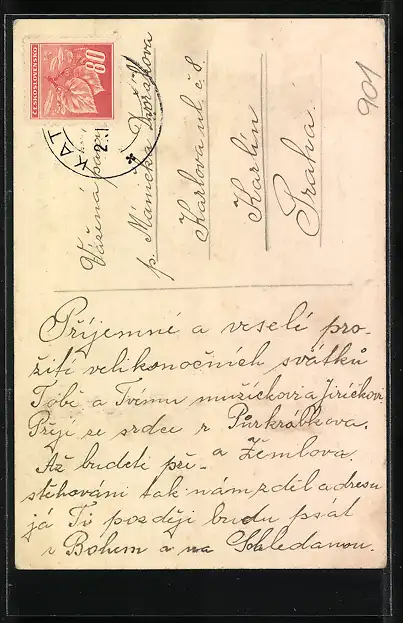 ČESKOSLOVENSKO
80
KAT
2.
901
Vážená paní
p. Mánička Dvořákova
Karlova ul. č. 8
Karlín
Praha.
Příjemné a veselé pro-
žití velikonočních svátků
Tobě a Tvému mužíčkovi a Jiříčkovi
Přejí se srdce r Půrkrábkova.
a Žemlova.
Až budeti pře-
stěhováni tak nám zděl adresu
já Ti později budu psát
s Bohem a na Schledanou.